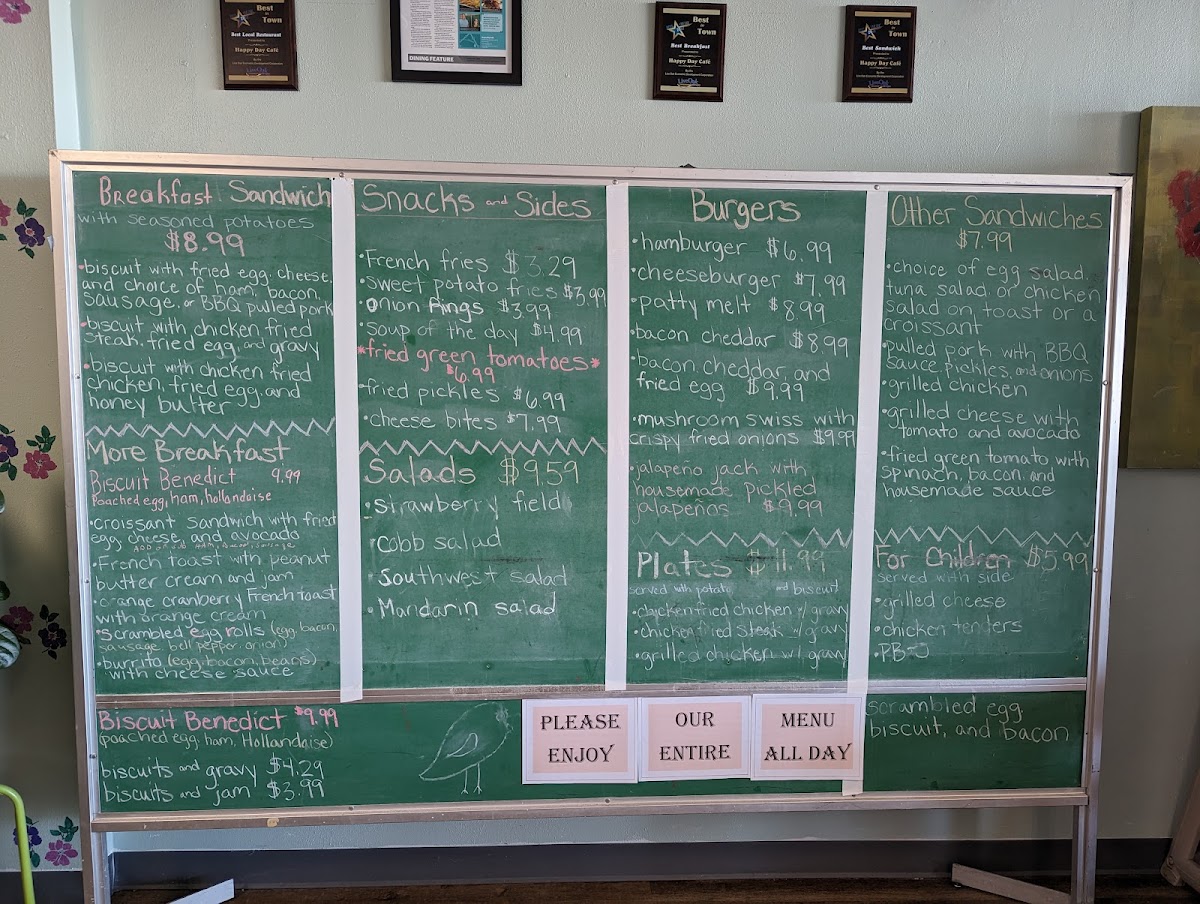 Best
in
Town
Best Local Restaurant
Presented to
Happy Day Café
By the
DINING FEATURE
Best
in
Town
Best Breakfast
Presented to
Happy Day Café
By the
Best
in
Town
Best Sandwich
Presented to
Happy Day Café
By the
Breakfast Sandwich
with seasoned potatoes
$8.99
•biscuit with fried egg, cheese,
and choice of ham, bacon,
sausage, or BBQ pulled pork
•biscuit with chicken fried
steak, fried egg, and gravy
•biscuit with chicken fried
chicken, fried egg, and
honey butter
More Breakfast
Biscuit Benedict 9.99
Poached egg, ham, hollandaise
•croissant sandwich with fried
egg, cheese, and avocado
ADD or sub HAM, Bacon, Sausage
•French toast with peanut
butter cream and jam
•orange cranberry French toast
with orange cream
•scrambled egg rolls (egg, bacon,
sausage, bell pepper, onion)
•burrito (egg, bacon, beans)
with cheese sauce
Biscuit Benedict $9.99
(poached egg, ham, Hollandaise)
biscuits and gravy $4.29
biscuits and jam $3.99
Snacks and Sides
•French fries $3.29
•sweet potato fries $3.99
•onion rings $3.99
•soup of the day $4.99
*fried green tomatoes*
$6.99
•fried pickles $6.99
•cheese bites $7.99
Salads $9.59
•strawberry field
•cobb salad
•Southwest salad
•Mandarin salad
Burgers
•hamburger $6.99
•cheeseburger $7.99
•patty melt $8.99
•bacon cheddar $8.99
•bacon cheddar, and
fried egg $9.99
•mushroom swiss with
crispy fried onions $9.99
•jalapeño jack with
housemade pickled
jalapeños $9.99
Plates $11.99
served with potato and biscuit
•chicken fried chicken w/ gravy
•chicken fried steak w/ gravy
•grilled chicken w/ gravy
Other Sandwiches
$7.99
•choice of egg salad,
tuna salad, or chicken
salad on toast or a
croissant
•pulled pork with BBQ
sauce, pickles, and onions
•grilled chicken
•grilled cheese with
tomato and avocado
•fried green tomato with
spinach, bacon, and
housemade sauce
For Children $5.99
served with side
•grilled cheese
•chicken tenders
•PB&J
scrambled egg,
biscuit, and bacon
PLEASE
ENJOY
OUR
ENTIRE
MENU
ALL DAY